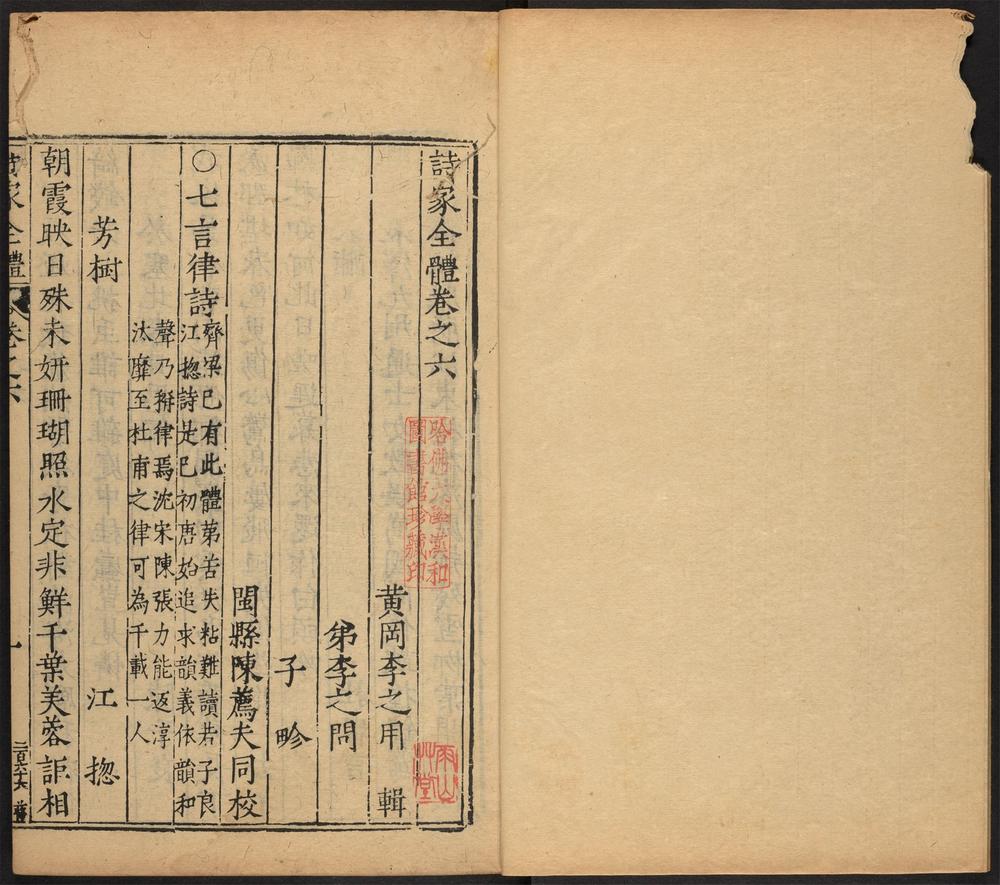 詩家全體卷之六
黄岡李之用輯
弟李之問
子畛
閩縣陳薦夫同校
○七言律詩
齊梁已有此體苐苦失粘難讀若子良
江揔詩是已初唐始追求韻義依韻和
聲乃搿律焉沈宋陳張力能返淳
汰靡至杜甫之律可為千載一人
芳樹 江揔
朝霞映日殊未妍珊瑚照水定非鮮千葉芙蓉詎相
詩家全體 卷之六 一
哈佛大學漢和
圖書館珍藏印
雨山
草堂